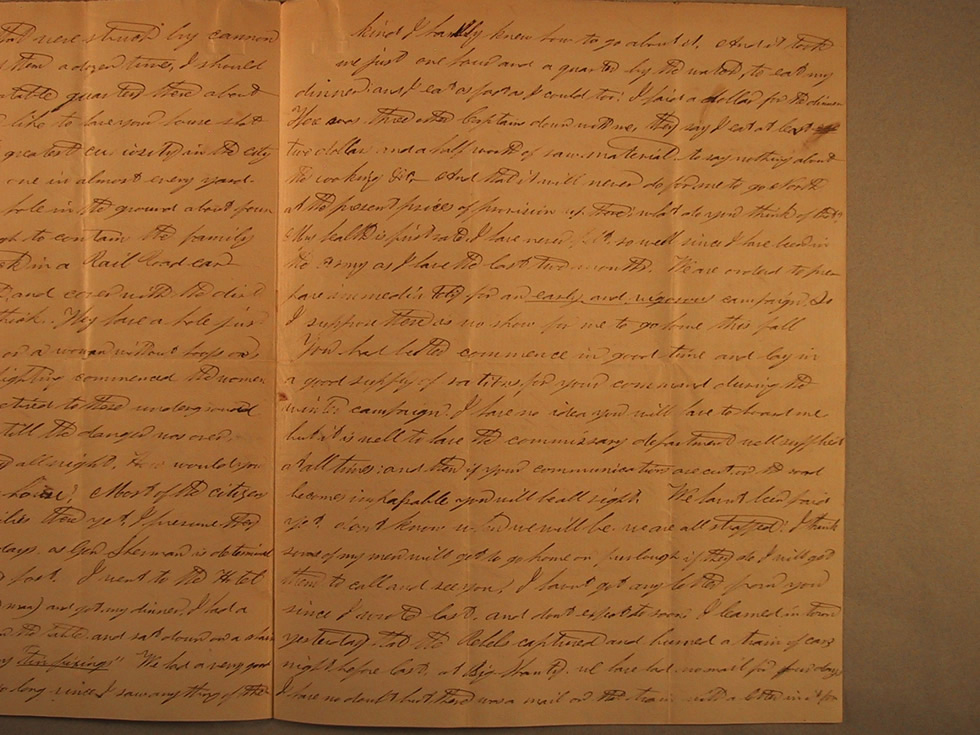 that were struck by cannon
them a dozen times, I should
table quarters there about
like to have your house shot
greatest curiosity in the city
one in almost every yard
hole in the ground about four
to contain the family
in a Rail Road car
and cover with the dirt
thick. They have a hole just
or a woman without hoops on
fighting commenced the women
to these underground
till the danger was over.
all night, How would you
house? Most of the citizens
there yet, I presume they
days, as Gen Sherman is determined
fast. I went to the Hotel
and got my dinner, I had a
the table and sat down on a chair
fixings" We had a very good
long since I saw any thing of the
kind I hardly knew how to go about it. And it took
me just one hour and a quarter by the watch, to eat my
dinner: and I eat as fast as I could too! I paid a dollar for the dinner
There was three other Captains down with me, they say I eat at least
two dollars and a half worth of raw-material to say nothing about
the cooking &c. And that it will never do for me to go North
at the present prices of provision up there: what do you think of that?
My health is first rate, I have never felt so well since I have been in
the Army as I have the last two months. We are ordered to pre
pare immediately for an early and vigorous campaign. So
I suppose there is no show for me to go home this fall
You had better commence in good time and lay in
a good supply of rations for your command during the
winter campaign. I have no idea you will have to board me
but it is well to have the commissary department well supplied
at all times: and then if your communications are cut or the road
becomes impassable you will be all right. We haint been paid
yet dont know when we will be. we are all strapped! I think
some of my men will get to go home on furlough if they do I will get
them to call and see you, I havnt got any letter from you
since I wrote last, and dont expect to soon. I learned in town
yesterday that the Rebels captured and burned a train of cars
night before last, at Big Shanty. we have had no mail for four days
I have no doubt but there was a mail on the train with a letter in it for